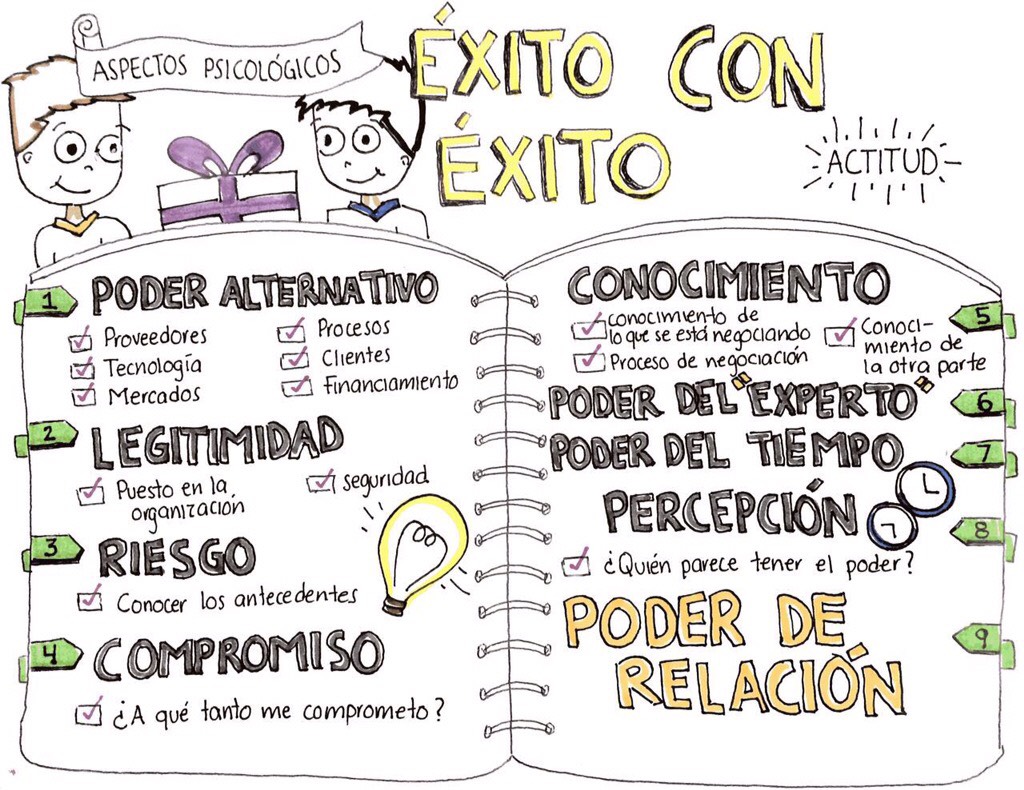 ASPECTOS PSICOLÓGICOS
ÉXITO CON
ÉXITO
ACTITUD
1 PODER ALTERNATIVO
Proveedores
Tecnología
Mercados
Procesos
Clientes
Financiamiento
2 LEGITIMIDAD
Puesto en la
organización
seguridad
3 RIESGO
Conocer los antecedentes
4 COMPROMISO
¿A qué tanto me comprometo?
CONOCIMIENTO 5
conocimiento de
lo que se está negociando
Proceso de negociación
Conoci-
miento de
la otra parte
PODER DEL "EXPERTO" 6
PODER DEL TIEMPO 7
PERCEPCIÓN 8
¿Quién parece tener el poder?
PODER DE 9
RELACIÓN